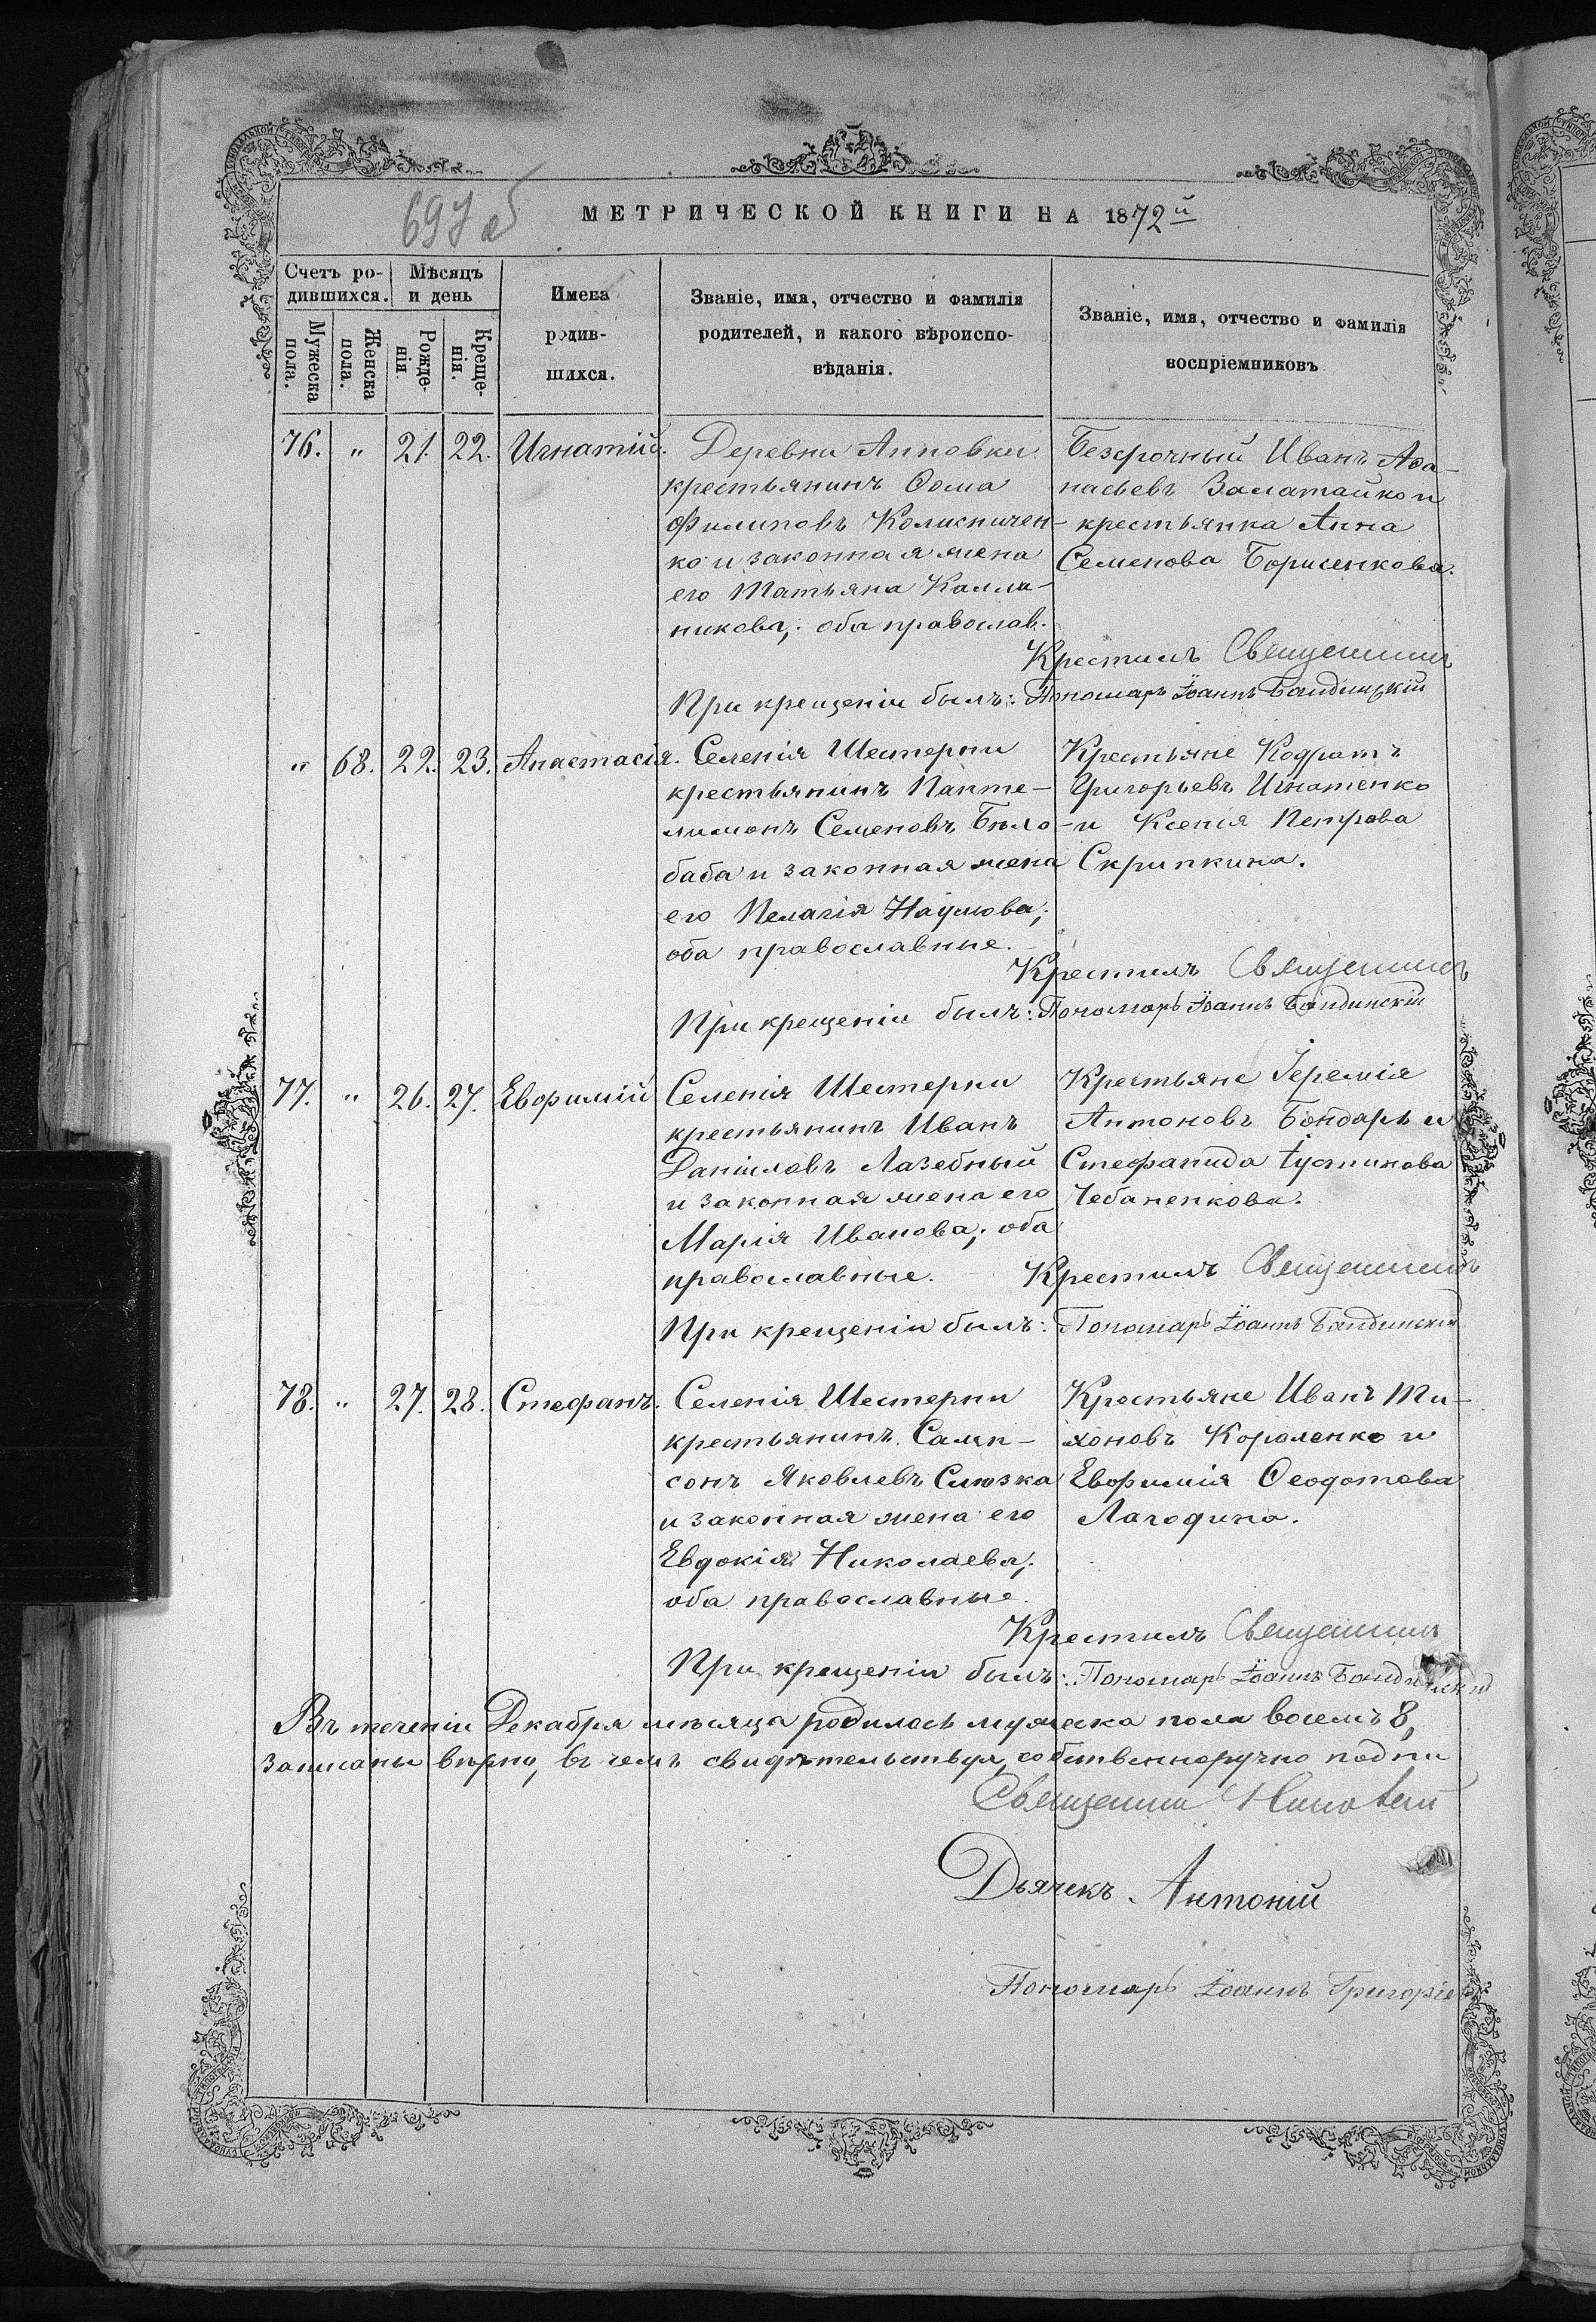 697 об
МЕТРИЧЕСКОЙ КНИГИ НА 1872й
Счетъ ро-
дившихся.
Мѣсяцъ
и день
Мужеска
пола.
Женска
пола.
Рожде-
нія.
Креще-
нія.
Имена
родив-
шихся.
Званіе, имя, отчество и фамилія
родителей, и какого вѣроиспо-
вѣданія.
Званіе, имя, отчество и фамилія
воспріемниковъ
76. " 21. 22. Игнатій.
Деревни Анновки
крестьянинъ Ѳома
Филиповъ Колисничен-
ко и законная жена
его Татьяна Калли-
никова; оба православ.
Безсрочный Иванъ Аѳа-
насьевъ Залатайко и
крестьянка Анна
Семенова Борисенкова.
Крестилъ Священникъ
При крещеніи былъ: Пономарь Іоаннъ Бандинскій
" 68. 22. 23. Анастасія.
Селенія Шестерни
крестьянинъ Панте-
лимонъ Семеновъ Бѣло-
баба и законная жена
его Пелагія Наумова;
оба православные.
Крестьяне Кодратъ
Григорьевъ Игнатенко
и Ксенія Петрова
Скрипкина.
Крестилъ Священникъ
При крещеніи былъ: Пономарь Іоаннъ Бандинскій
77. " 26. 27. Евфимій
Селенія Шестерни
крестьянинъ Иванъ
Даніиловъ Лазебный
и законная жена его
Марія Иванова; оба
православные.
Крестьяне Іеремія
Антоновъ Бондарь и
Стефанида Іустинова
Чебаненкова.
Крестилъ Священникъ
При крещеніи былъ: Пономарь Іоаннъ Бандинскій
78. " 27. 28. Стефанъ.
Селенія Шестерни
крестьянинъ Самп-
сонъ Яковлевъ Слюзка
и законная жена его
Евдокія Николаева;
оба православные.
Крестьяне Иванъ Ти-
хоновъ Короленко и
Евфимія Ѳеодотова
Лагодина.
Крестилъ Священникъ
При крещеніи былъ: Пономарь Іоаннъ Бандинскій
Въ теченіи Декабря мѣсяца родилось мужеска пола восемъ 8,
записаны вѣрно, въ чемъ свидѣтельствуя, собственноручно подпи
Священник
Дьячекъ Антоній
Пономарь Іоаннъ Григоріев